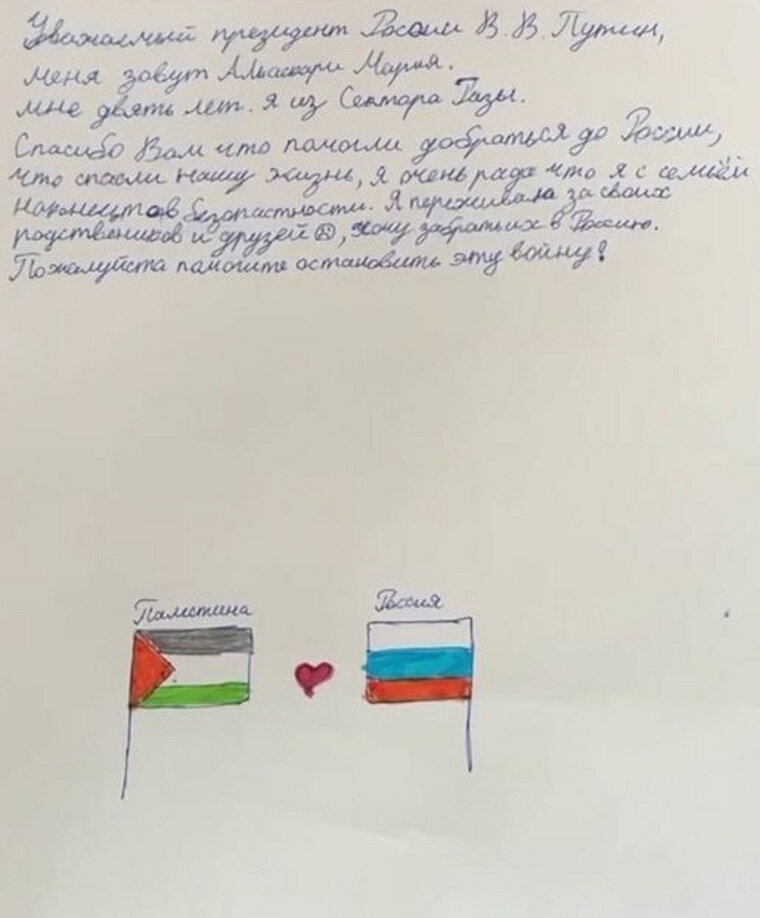 Уважаемый президент России В. В. Путин,
меня зовут Альаскари Мария.
мне девять лет. я из Сектора Газы.
Спасибо Вам что помогли добраться до России,
что спасли нашу жизнь, я очень рада что я с семьёй
наконецто в безопастности. Я переживала за своих
родствеников и друзей ☹, хочу забрать их в Россию.
Пожалуйста помогите остановить эту войну!
Палестина
Россия